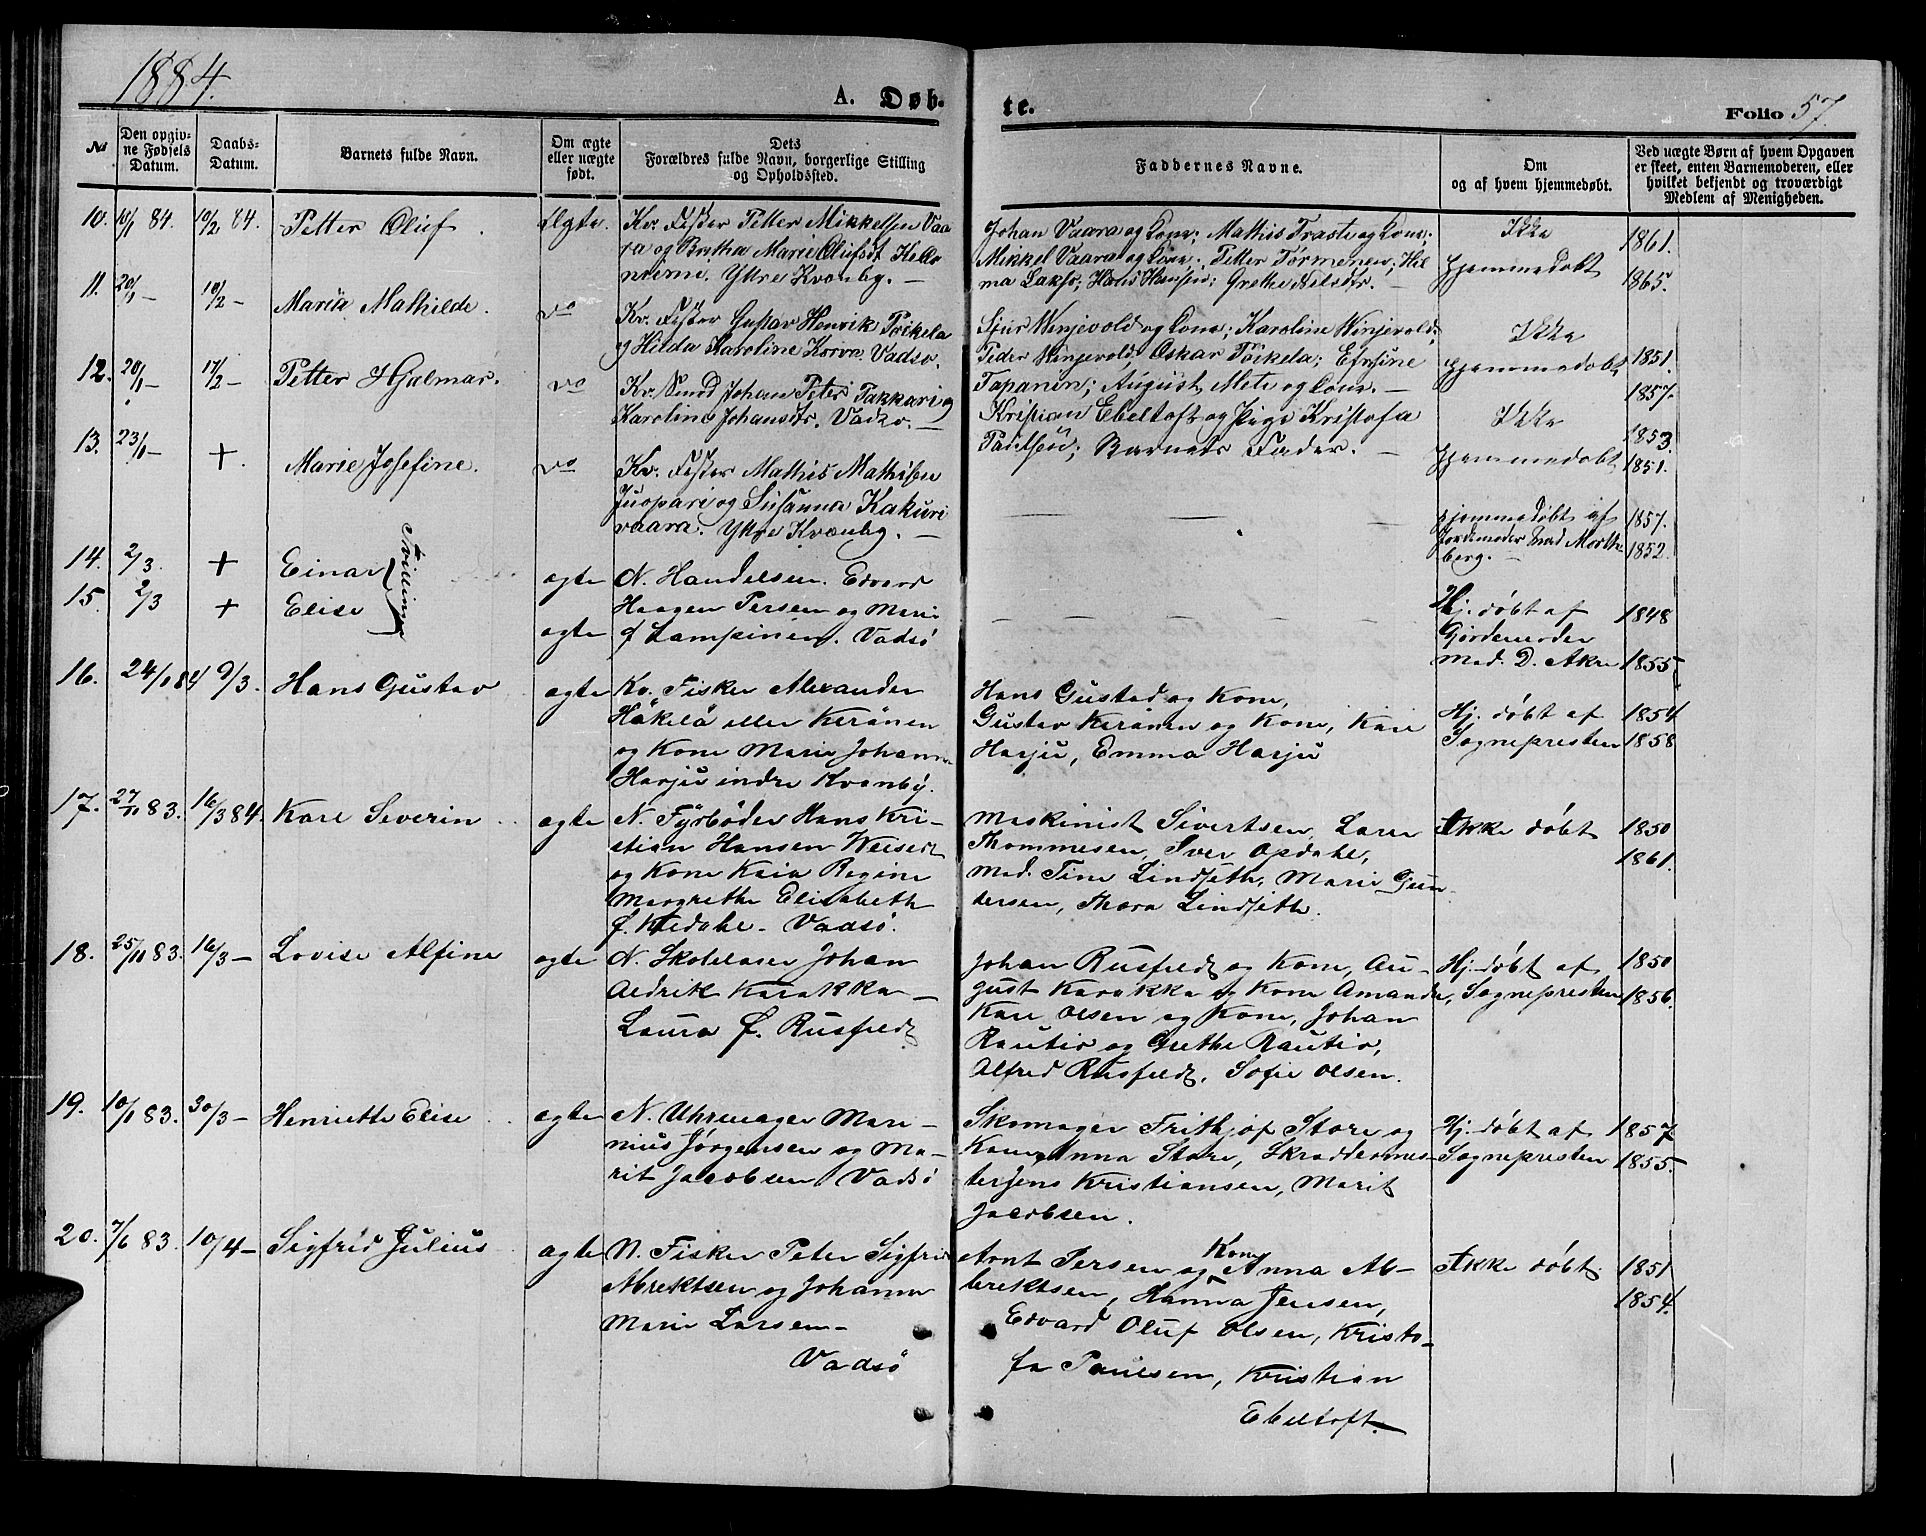 1884.
A. Døb-
te.
Folio 57.
No
Den opgiv-
ne Fødsels
Datum.
Daabs-
Datum.
Barnets fulde Navn.
Om ægte
eller uægte
født.
Dets
Forældres fulde Navn, borgerlige Stilling
og Opholdssted.
Faddernes Navne.
Om
og af hvem hjemmedøbt.
Ved uægte Børn af hvem Opgaven
er skeet, enten Barnemoderen, eller
hvilket bekjendt og troværdigt
Medlem af Menigheden.
10. 10/1 84. 10/2 84. Petter Oluf. Ægte. Kv. Fisker Petter Mikkelsen Vaa
ra og Bretha Marie Olufsdt Kello
niemi. Yttre Kvænby. —
Johan Vaara og Kone; Mathis Fraste og Kone;
Mikkel Vaara og Kone; Petter Törmenen; Hil
ma Lakso; Hans Hansen; Grethe Nilsdtr. —
Ikke
hjemmedøbt
1861.
1865.
11. 20/1 — 10/2 — Maria Mathilde. do Kv. Fisker Gustav Henrik Pokela
og Hilda Karoline Korva. Vadsø.
Sjur Winjevold og Kone; Karoline Winjevold;
Peder Winjevold; Oskar Pokela; Efrosine
Tapanen; August Mete og Kone. —
Ikke
hjemmedøbt
1851.
1857.
12. 20/1 — 17/2 — Petter Hjalmar. do Kv. Smed Johan Peter Takkari og
Karoline Johansdtr. Vadsø. —
Kristian Ebeltoft og Pige Kristofa
Paulsen; Barnets Fader. —
Ikke
hjemmedøbt
1853.
1851.
13. 23/1 — + Marie Josefine. do Kv. Fisker Mathis Mathisen
Juopari og Susanna Kakuri
vaara. Yttre Kvænby. —
— — — —
hjemmedøbt af
Jordemoder Mad Morthe
berg. —
1857.
1852.
14. 2/3. + Einar
Tvillinger
ægte N. Handelsm. Edvard
15. 2/3 + Elise
Haagen Persen og Mari
ægte f Lampinen. Vadsö
— — — —
Hj. döbt af
Gjordemoder
Mad. D. Aker
1848
1855
16. 24/1 84 9/3. Hans Gustav ægte Kv. Fisker Alexander
Häkelä eller Keränen
og Kone Marie Johanna
Harju indre Kvænby.
Hans Gustad og Kone,
Gustav Keränen og Kone, Kare
Harju, Emma Harju
Hj. döbt af
Sognepresten
1854
1858
17. 27/11 83. 16/3 84. Kare Severin ægte N. Fyrböder Hans Kri-
stian Hansen Weiseth
og Kone Kaia Regine
Margrethe Elisabeth
f. Kledahl — Vadsö.
Maskinist Sivertsen, Lars
Thommesen, Iver Opdahl,
Mad. Tine Lindseth, Marie Gun
dersen, Thora Lindseth.
Ikke döbt
1850
1861.
18. 25/11 83. 16/3 — Lovise Alfine ægte N. Skolelærer Johan
Aldrik Karakka —
Laura f. Rusfeldt
Johan Rusfeldt og Kone, Au-
gust Karakka og Kone Amanda,
Kare Olsen og Kone, Johan
Rautio og Grethe Rautio,
Alfred Rusfeldt, Sofie Olsen.
Hj. döbt af
Sognepresten
1850
1856.
19. 10/1 83. 30/3 — Henriette Elise ægte N. Uhrmager Mari-
nius Jørgensen og Ma-
rit Jacobsen Vadsö
Skomager Frithjof Store og
Kone Anna Store, Skræddermes-
ter Jens Kristiansen, Marit
Jacobsen.
Hj. döbt af
Sognepresten
1857
1855.
20. 7/6 83. 10/4 — Sigfrid Julius ægte N. Fisker Peter Sigfrid
Abrektsen og Johanna
Marie Larsen —
Vadsö
Arnt Jersen og Kone Anna Ab-
brektsen, Hanna Jensen,
Edvard Oluf Olsen, Kristo-
fa Paulsen, Kristian
Ebeltoft.
Ikke döbt.
1851
1854.